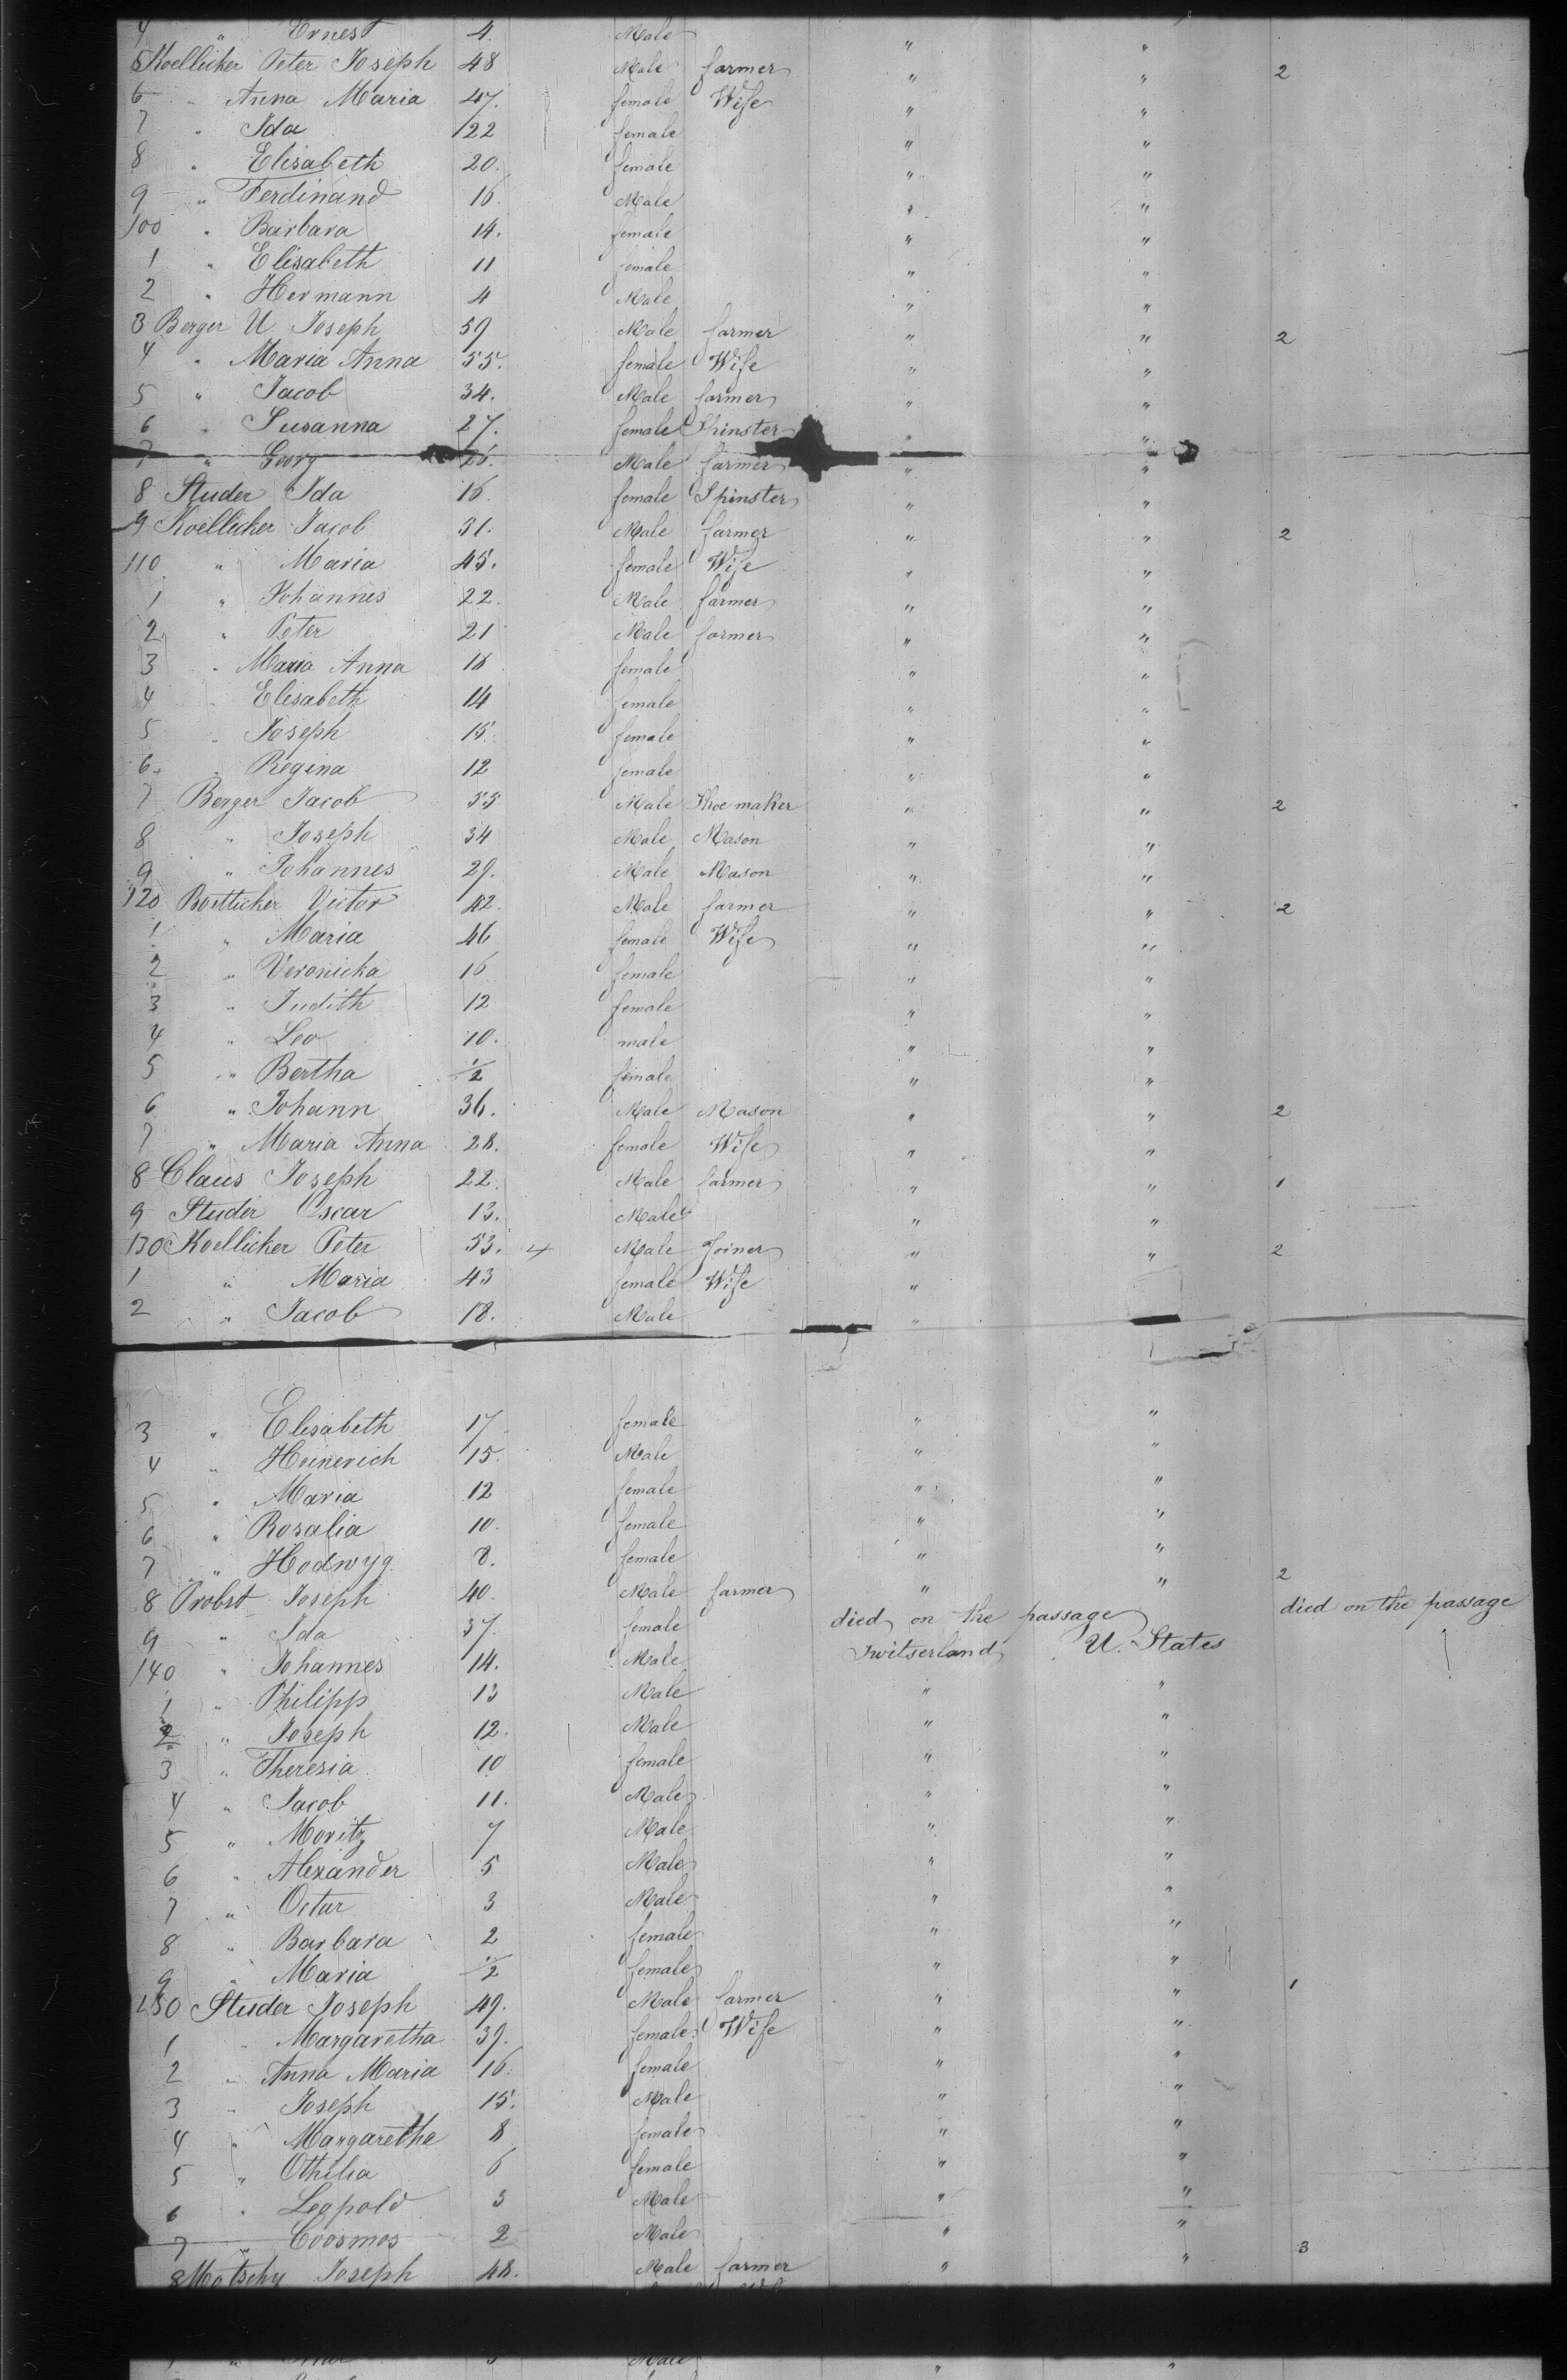 4 " Ernest 4. Male " "
5 Koellicker Peter Joseph 48 Male farmer " " 2
6 " Anna Maria 47. female Wife " "
7 " Ida 22 female " "
8 " Elisabeth 20. female " "
9 " Ferdinand 16. Male " "
100 " Barbara 14. female " "
1 " Elisabeth 11 female " "
2 " Hermann 4 Male " "
3 Berger U. Joseph 59 Male farmer " " 2
4 " Maria Anna 55. female Wife " "
5 " Jacob 34. Male farmer " "
6 " Susanna 27. female Spinster " "
7 " Georg 25. Male farmer " "
8 Studer Ida 16. female Spinster " "
9 Koellicker Jacob 51. Male farmer " " 2
110 " Maria 45. female Wife " "
1 " Johannes 22. Male farmer " "
2 " Peter 21 Male farmer " "
3 " Maria Anna 18 female " "
4 " Elisabeth 14 female " "
5 " Joseph 15. female " "
6 " Regina 12 female " "
7 Berger Jacob 55 Male Shoe maker " " 2
8 " Joseph 34 Male Mason " "
9 " Johannes 29. Male Mason " "
120 Boetticher Victor 42. Male farmer " " 2
1 " Maria 46 female Wife " "
2 " Veronicka 16 female " "
3 " Judith 12 female " "
4 " Leo 10. male " "
5 " Bertha 1/2 female " "
6 " Johann 36. Male Mason " " 2
7 " Maria Anna 28. female Wife " "
8 Claus Joseph 22. Male farmer " " 1
9 Studer Oscar 13. Male " "
130 Koellicker Peter 53. Male Joiner " " 2
1 " Maria 43 female Wife "
2 " Jacob 18. Male "
3 " Elisabeth 17 female " "
4 " Heinerich 15. Male " "
5 " Maria 12 female " "
6 " Rosalia 10. female " "
7 " Hedwyg 8. female " "
8 Probst Joseph 40. Male farmer " " 2
9 " Ida 37. female died on the passage died on the passage
140 " Johannes 14. Male Switserland U. States
1 " Philipp 13 Male " "
2 " Joseph 12. Male " "
3 " Theresia 10 female " "
4 " Jacob 11. Male " "
5 " Moritz 7 Male " "
6 " Alexander 5 Male " "
7 " Octar 3 Male " "
8 " Barbara 2 female " "
9 " Maria 1/2 female " "
150 Studer Joseph 49. Male farmer " " 1
1 " Margaretha 39. female Wife " "
2 " Anna Maria 16. female " "
3 " Joseph 15. Male " "
4 " Margaretha 8 female " "
5 " Othilia 6 female " "
6 " Leopold 3 Male " "
7 " Coosmos 2 Male " "
8 Motschy Joseph 48. Male farmer " " 3
Male " "